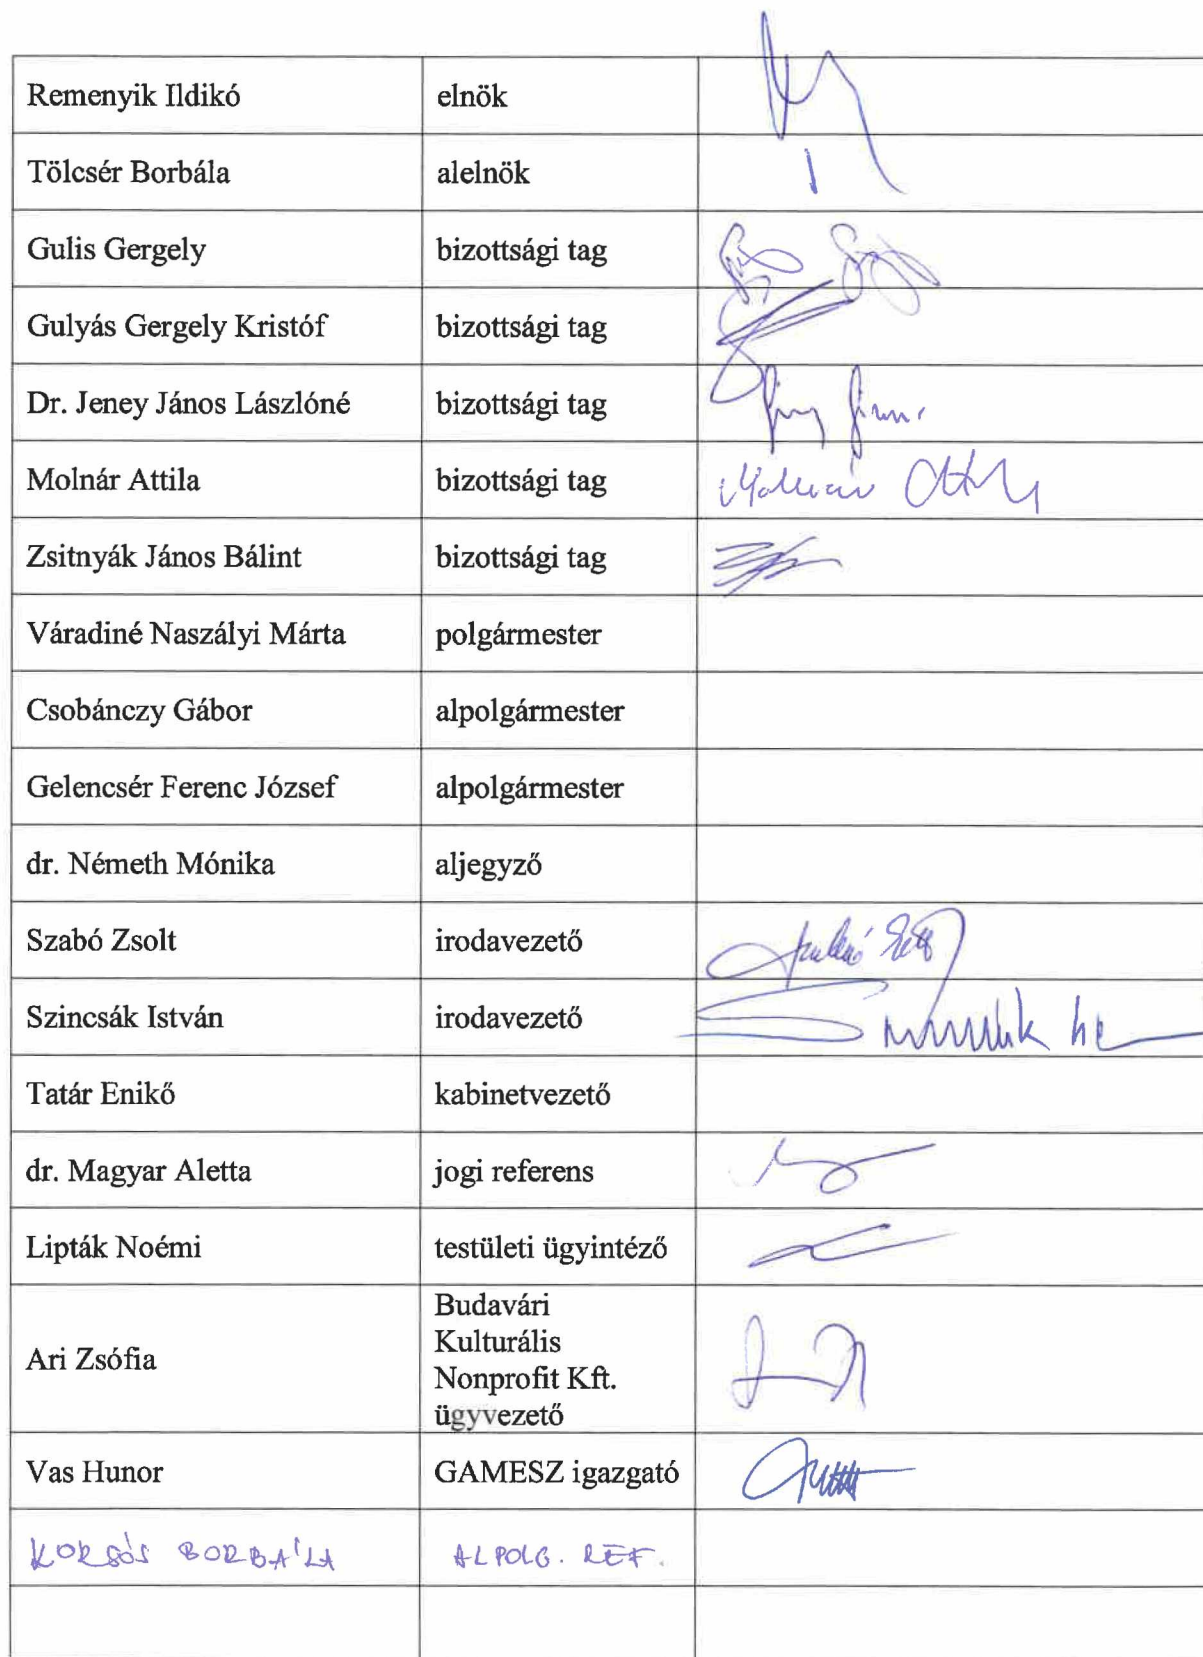 Remenyik Ildikó elnök
Tölcsér Borbála alelnök
Gulis Gergely bizottsági tag
Gulyás Gergely Kristóf bizottsági tag
Dr. Jeney János Lászlóné bizottsági tag
Molnár Attila bizottsági tag Molnár Attila
Zsitnyák János Bálint bizottsági tag
Váradiné Naszályi Márta polgármester
Csobánczy Gábor alpolgármester
Gelencsér Ferenc József alpolgármester
dr. Németh Mónika aljegyző
Szabó Zsolt irodavezető
Szincsák István irodavezető
Tatár Enikő kabinetvezető
dr. Magyar Aletta jogi referens
Lipták Noémi testületi ügyintéző
Ari Zsófia
Budavári
Kulturális
Nonprofit Kft.
ügyvezető
Vas Hunor GAMESZ igazgató
KORSÓS BORBÁLA ALPOLG. REF.